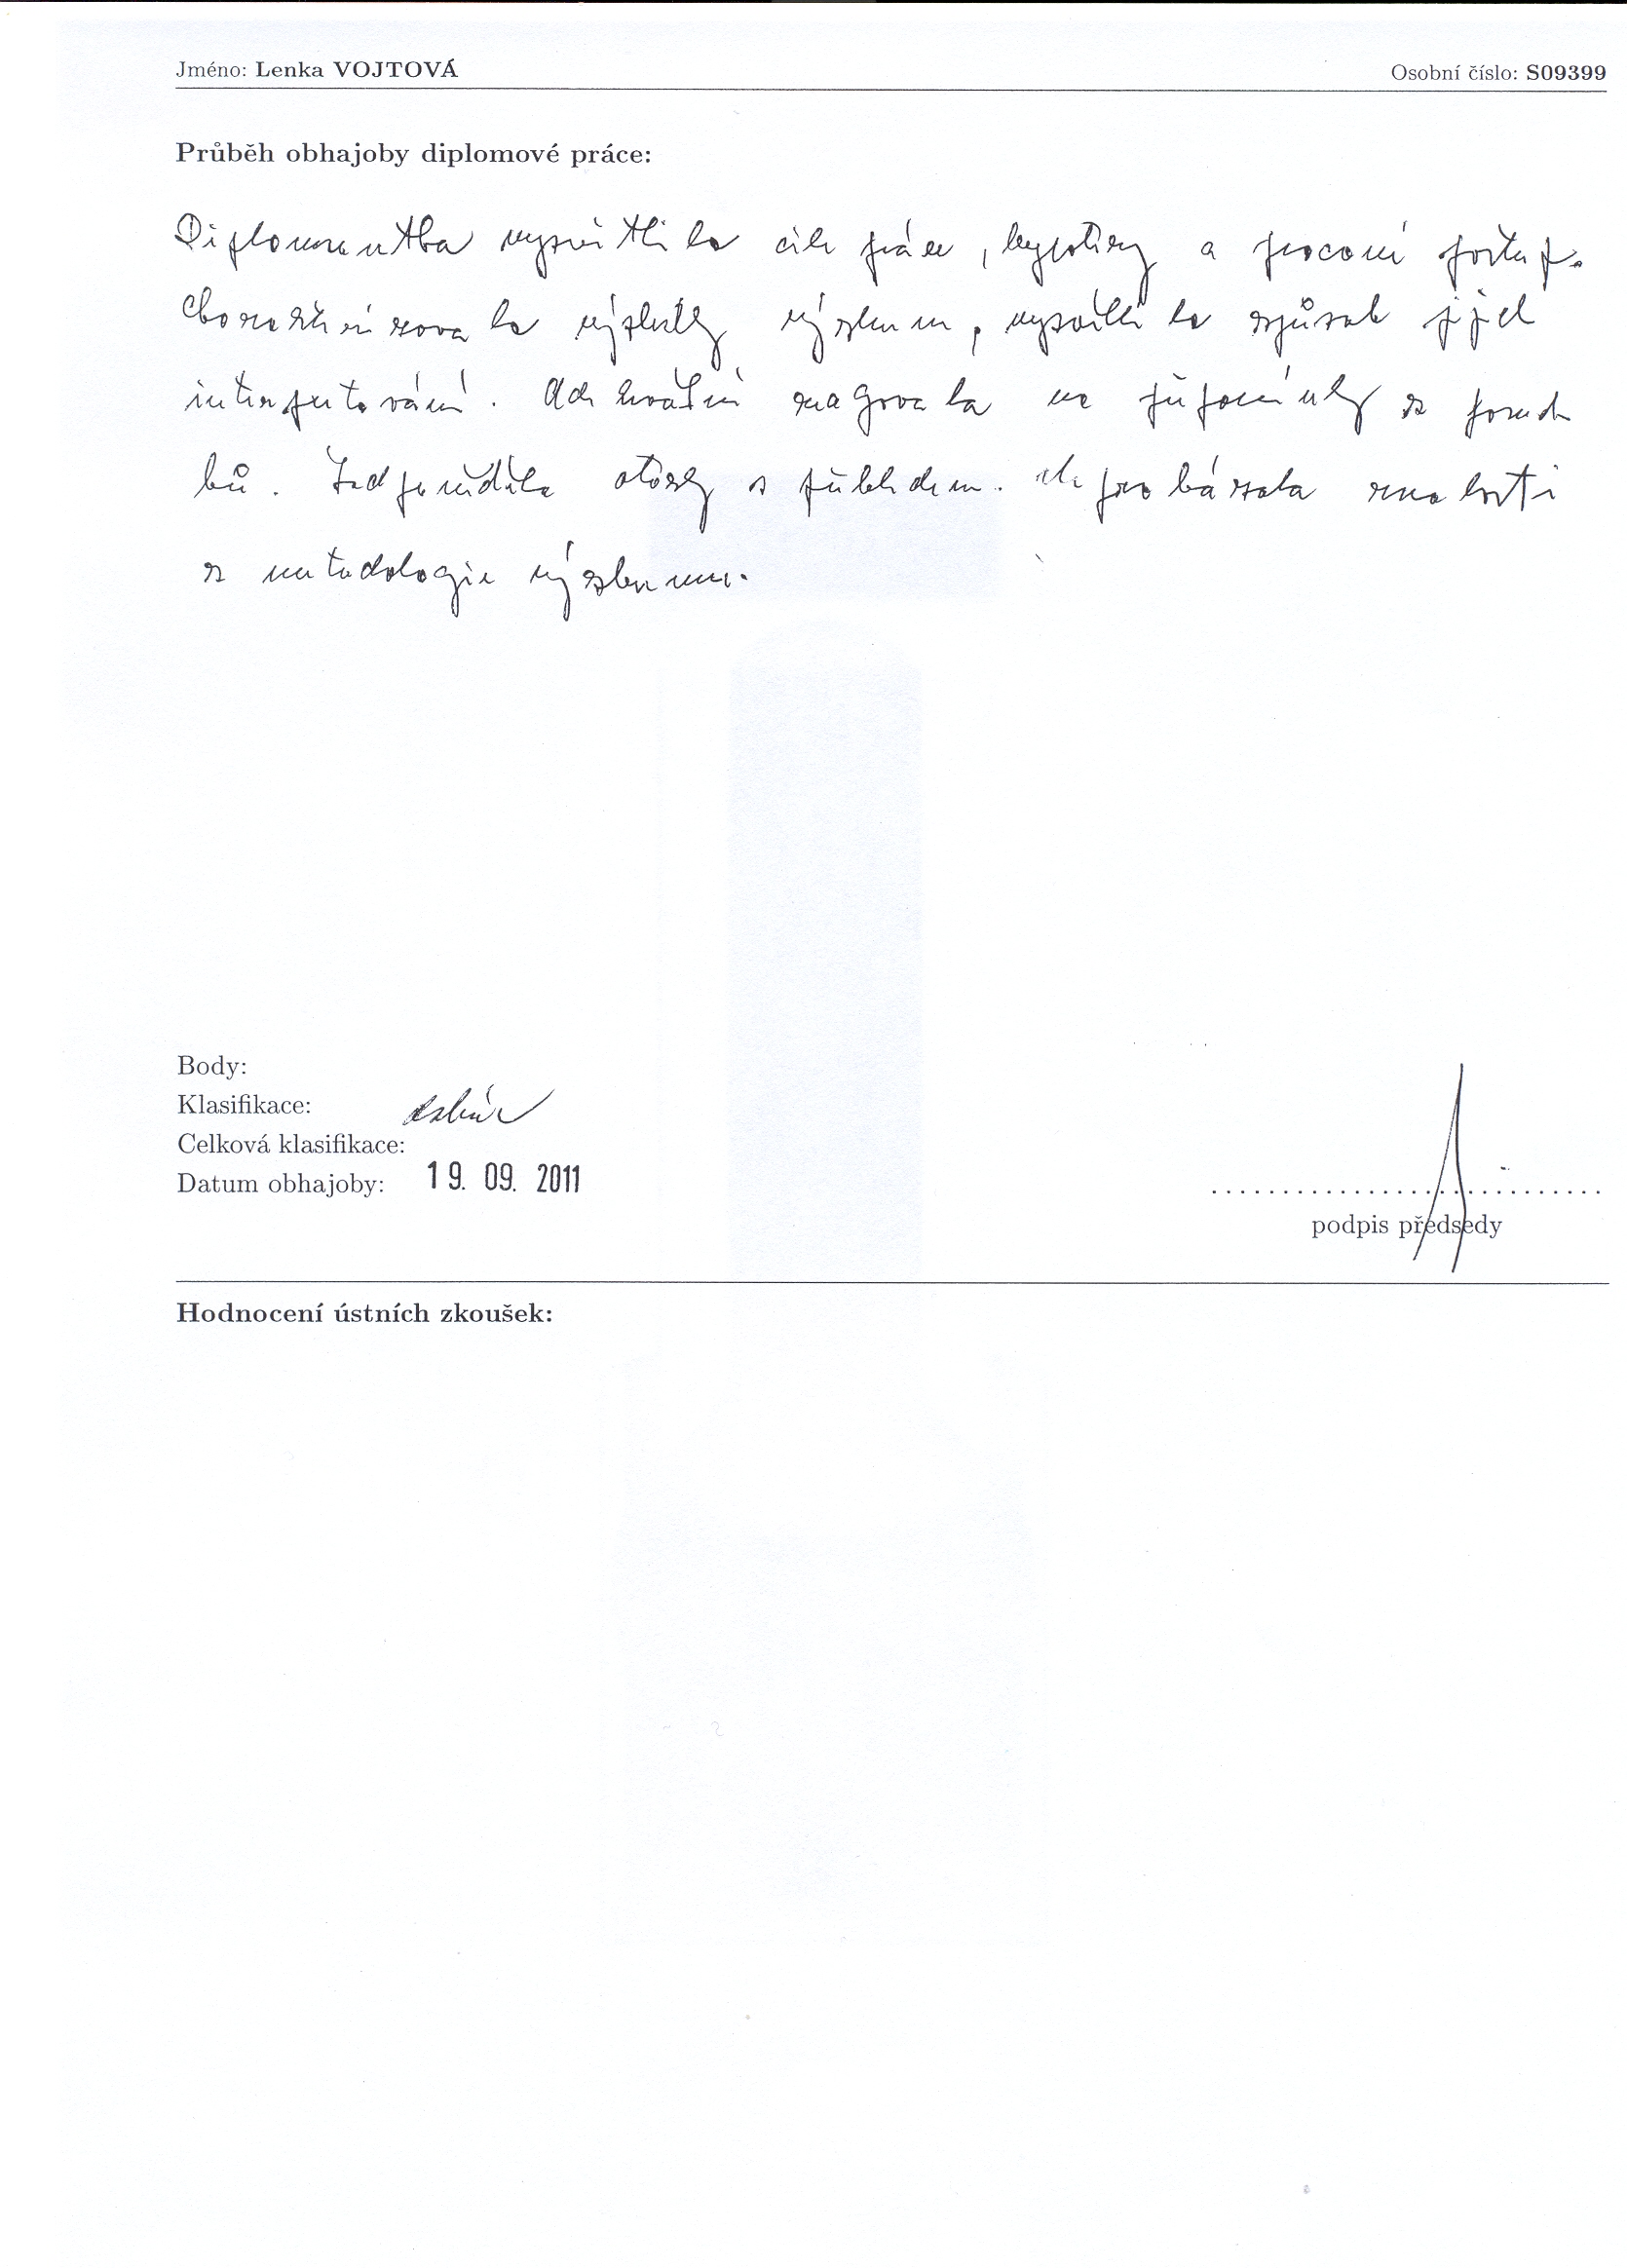 Jméno: Lenka VOJTOVÁ Osobní číslo: S09399
Průběh obhajoby diplomové práce:
Diplomantka vysvětlila cíle práce, hypotézy a pracovní postup.
Charakterizovala výsledky výzkumu, vysvětlila způsob jejich
interpretování. Adekvátně reagovala na připomínky z posud
ků. Zodpověděla otázky s přehledem. Prokázala znalosti
z metodologie výzkumu.
Body:
Klasifikace: výborně
Celková klasifikace:
Datum obhajoby: 19. 09. 2011
podpis předsedy
Hodnocení ústních zkoušek: